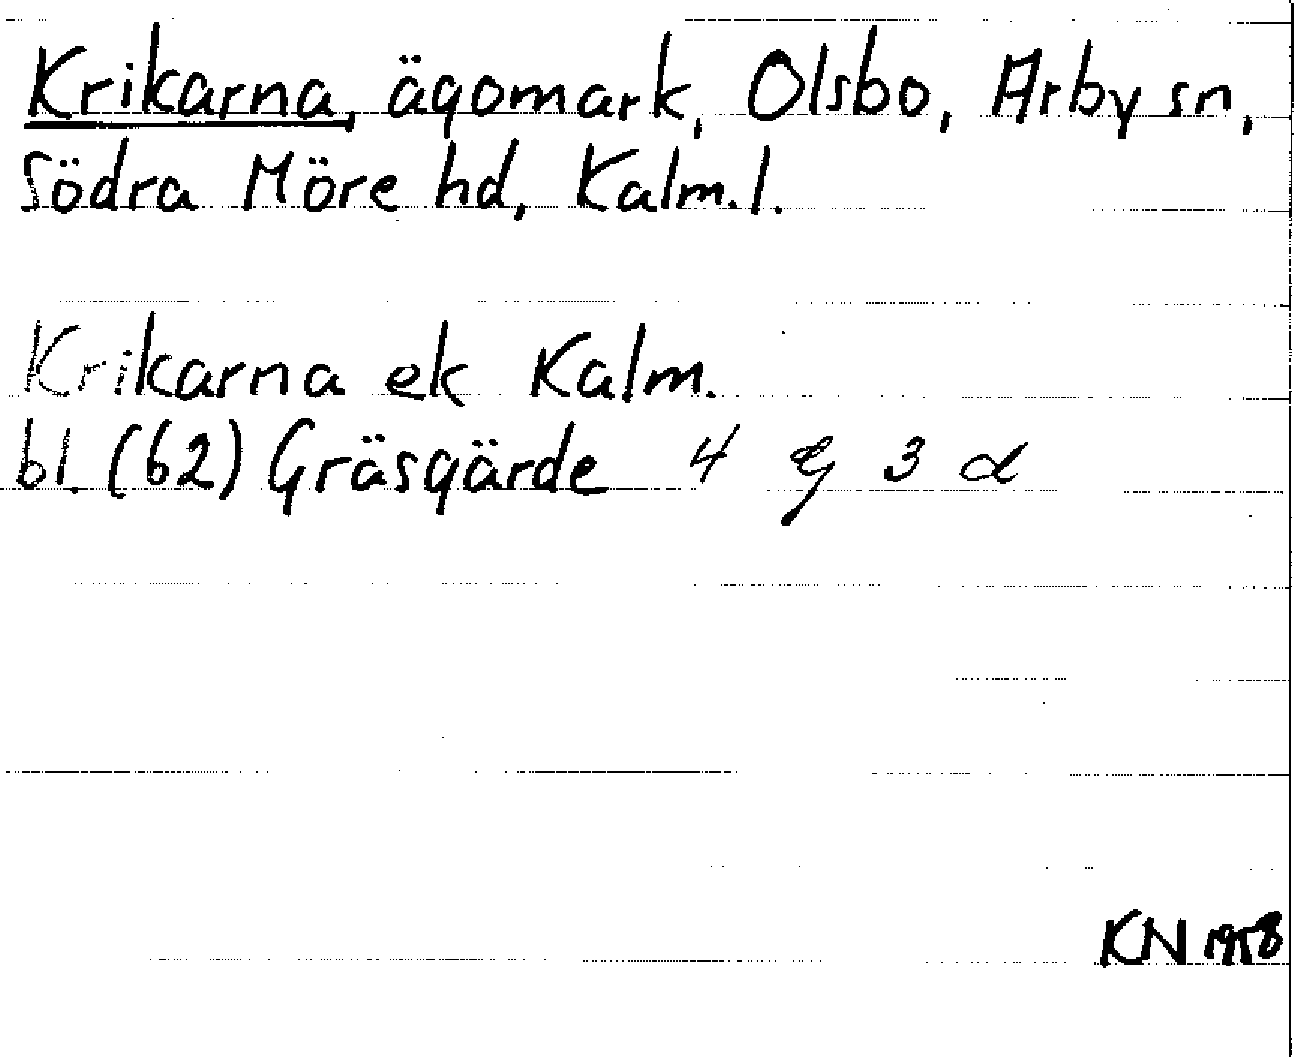 Krikarna, ägomark, Olsbo, Arby sn,
Södra Möre hd, Kalm. l.
Krikarna ek Kalm.
bl. (62) Gräsgärde 4 g 3 d
KN 1958